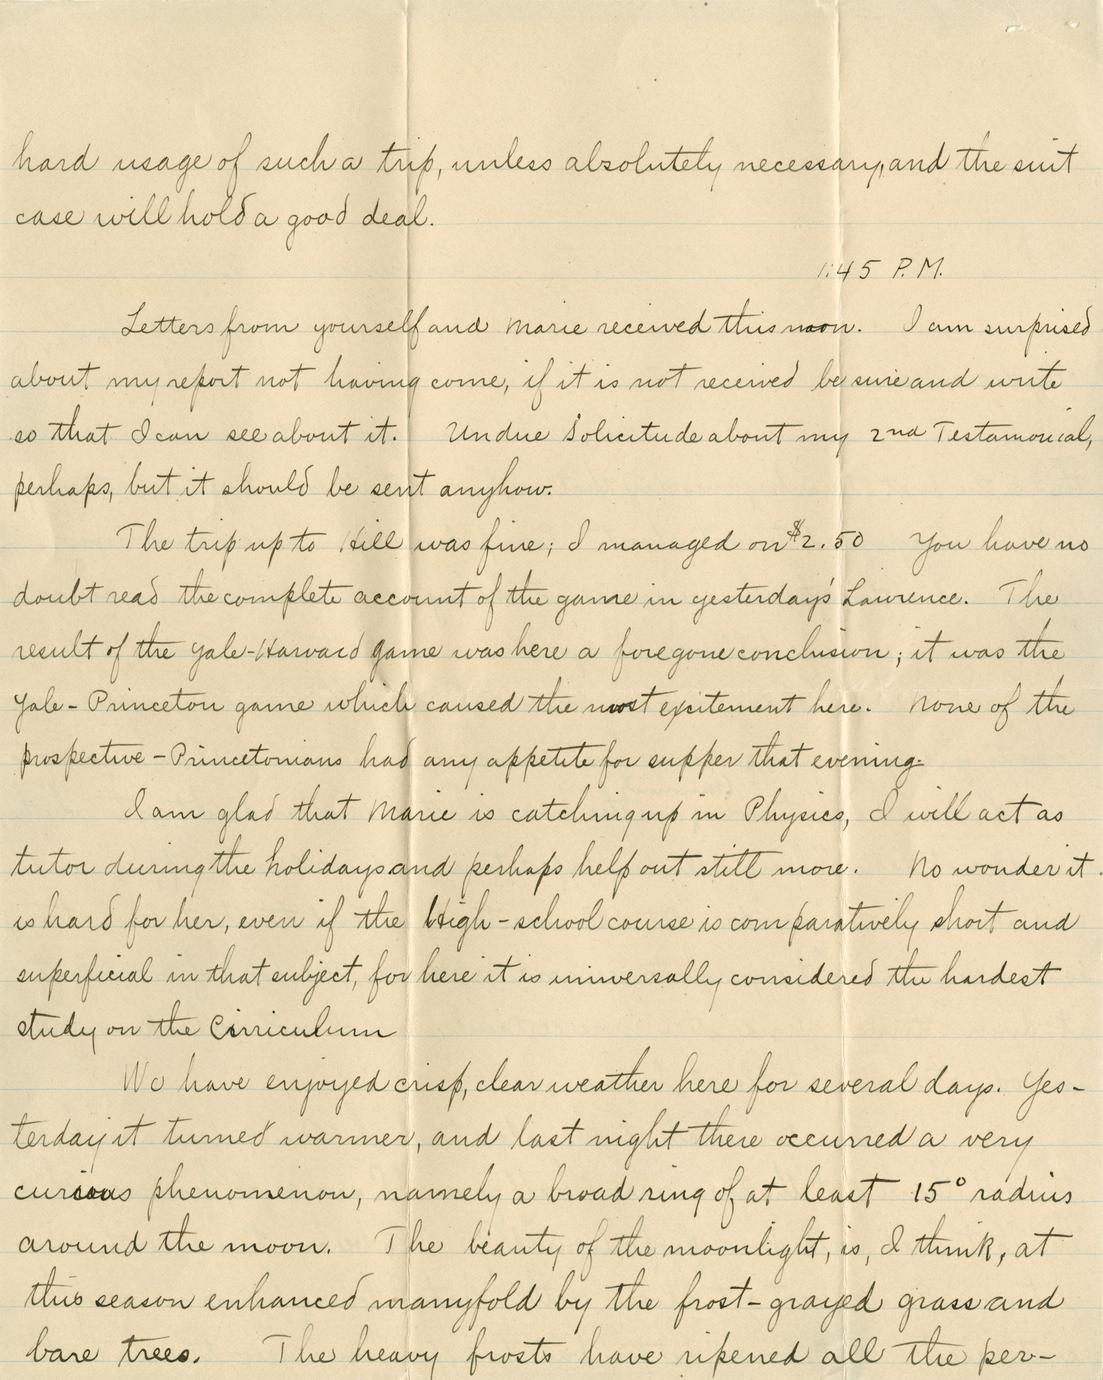 hard usage of such a trip, unless absolutely necessary, and the suit
case will hold a good deal.
1:45 P.M.
Letters from yourself and Marie received this noon. I am surprised
about my report not having come, if it is not received be sure and write
so that I can see about it. Undue Solicitude about my 2nd Testamonical,
perhaps, but it should be sent anyhow.
The trip up to Hill was fine; I managed on $2.50 You have no
doubt read the complete account of the game in yesterday's Lawrence. The
result of the Yale-Harvard game was here a foregone conclusion; it was the
Yale-Princeton game which caused the most excitement here. None of the
prospective-Princetonians had any appetite for supper that evening.
I am glad that Marie is catching up in Physics, I will act as
tutor during the holidays and perhaps help out still more. No wonder it
is hard for her, even if the High-school course is comparatively short and
superficial in that subject, for here it is universally considered the hardest
study on the Cirriculum
We have enjoyed crisp, clear weather here for several days. Yes-
terday it turned warmer, and last night there occurred a very
curious phenomenon, namely a broad ring of at least 15° radius
around the moon. The beauty of the moonlight, is, I think, at
this season enhanced manyfold by the frost-grayed grass and
bare trees. The heavy frosts have ripened all the per-